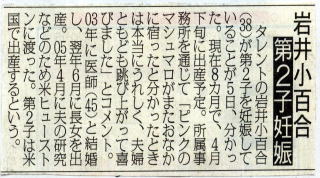 岩井小百合
第2子妊娠
タレントの岩井小百合
(38)が第2子を妊娠して
いることが5日、分かっ
た。現在8カ月で、4月
下旬に出産予定。所属事
務所を通じて「ピンクの
マシュマロがまたおなか
に宿ったと分かったとき
は本当にうれしく、夫婦
ともども跳び上がって喜
びました」とコメント。
03年に医師(45)と結婚
し、翌年6月に長女を出
産。05年4月に夫の研究
などのため米ヒュースト
ンに渡った。第2子は米
国で出産するという。